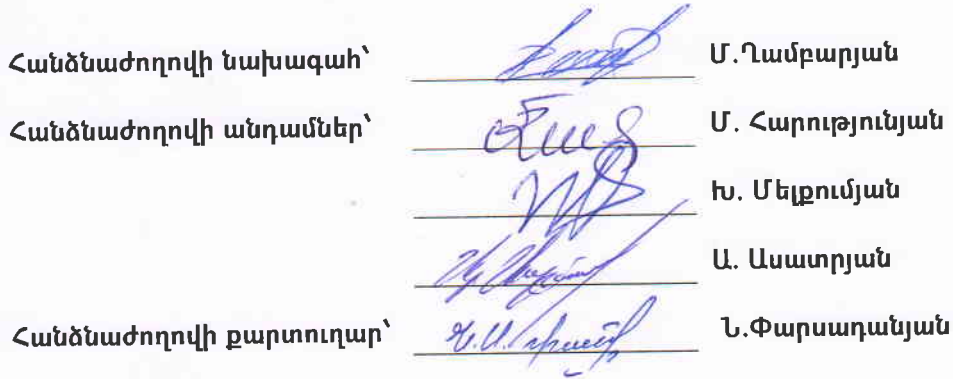 Հանձնաժողովի նախագահ՝ Մ.Ղամբարյան
Հանձնաժողովի անդամներ՝ Մ. Հարությունյան
Խ. Մելքումյան
Ա. Ասատրյան
Հանձնաժողովի քարտուղար՝ Ն.Փարսադանյան